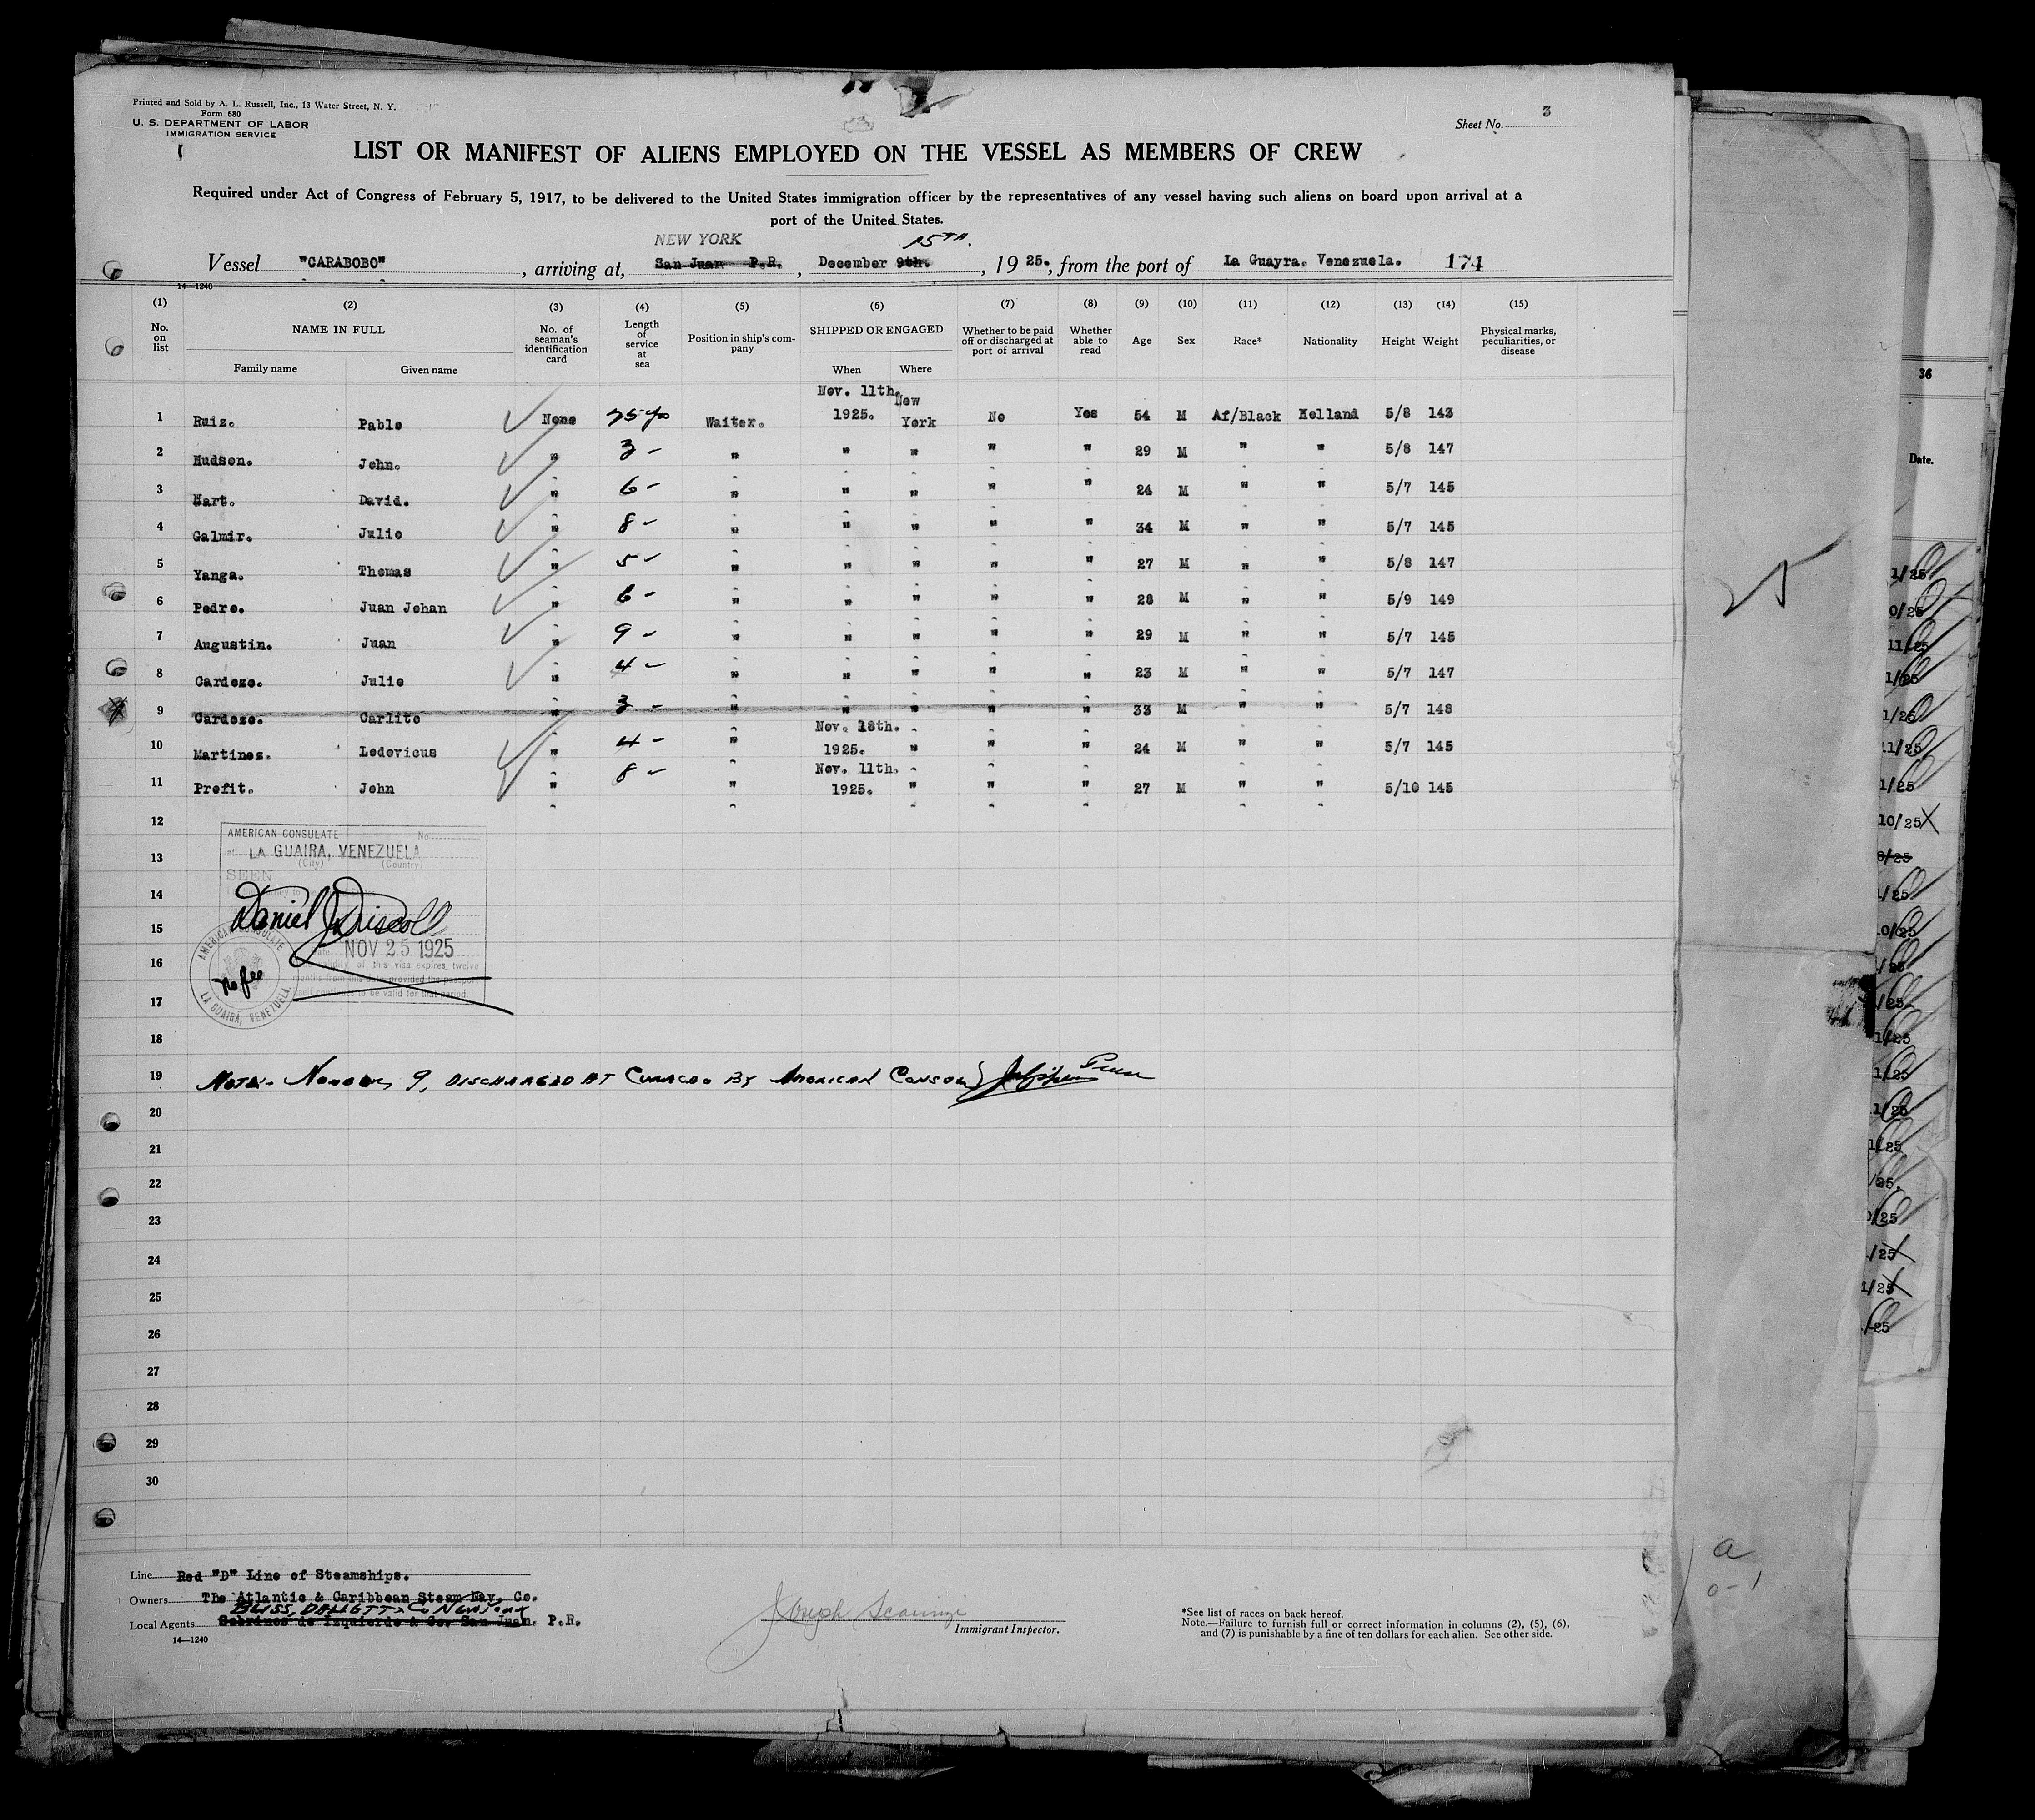 Printed and Sold by A. L. Russell, Inc., 13 Water Street, N. Y.
Form 680
U. S. DEPARTMENT OF LABOR
IMMIGRATION SERVICE
Sheet No. 3
LIST OR MANIFEST OF ALIENS EMPLOYED ON THE VESSEL AS MEMBERS OF CREW
Required under Act of Congress of February 5, 1917, to be delivered to the United States immigration officer by the representatives of any vessel having such aliens on board upon arrival at a
port of the United States.
NEW YORK 15TH.
Vessel "CARABOBO", arriving at, San Juan P.R., December 9th., 1925., from the port of La Guayra. Venezuela. 174
14—1240
(1) (2) (3) (4) (5) (6) (7) (8) (9) (10) (11) (12) (13) (14) (15)
No. on list NAME IN FULL Family name Given name No. of seaman's identification card Length of service at sea Position in ship's company SHIPPED OR ENGAGED When Where Whether to be paid off or discharged at port of arrival Whether able to read Age Sex Race* Nationality Height Weight Physical marks, peculiarities, or disease
1 Ruiz. Pablo None 25 yrs Waiter. Nov. 11th. 1925. New York No Yes 54 M Af/Black Holland 5/8 143
2 Hudson. John. " 3 - " " " " " 29 M " " 5/8 147
3 Hart. David. " 6 - " " " " " 24 M " " 5/7 145
4 Galmir. Julio " 8 - " " " " " 34 M " " 5/7 145
5 Yanga. Thomas " 5 - " " " " " 27 M " " 5/8 147
6 Pedro. Juan Johan " 6 - " " " " " 28 M " " 5/9 149
7 Augustin. Juan " 9 - " " " " " 29 M " " 5/7 145
8 Cardoze. Julio " 4 - " " " " " 23 M " " 5/7 147
9 Cardoze. Carlito " 3 - " " " " " 33 M " " 5/7 148
10 Martinez. Lodovicus " 4 - " Nov. 18th. 1925. " " " 24 M " " 5/7 145
11 Profit. John " 8 - " Nov. 11th. 1925. " " " 27 M " " 5/10 145
12
13
14
15
16
17
18
AMERICAN CONSULATE No.
at LA GUAIRA, VENEZUELA
(City) (Country)
SEEN
Daniel J Driscoll
Date NOV 25 1925
validity of this visa expires twelve
months from this date provided the passport
itself continues to be valid for that period.
AMERICAN CONSULATE
LA GUAIRA, VENEZUELA.
No fee
19 NOTE- NUMBER 9, DISCHARGED AT CURACAO BY AMERICAN CONSUL
20
21
22
23
24
25
26
27
28
29
30
Line Red "D" Line of Steamships.
Owners The Atlantic & Caribbean Steam Nav. Co.
BLISS, DALLETT & CO NEW YORK
Local Agents Sobrinos de Izquierdo & Co. San Juan. P.R.
14—1240
Immigrant Inspector.
*See list of races on back hereof.
Note.—Failure to furnish full or correct information in columns (2), (5), (6),
and (7) is punishable by a fine of ten dollars for each alien. See other side.
36
Date.
25
a
0-1